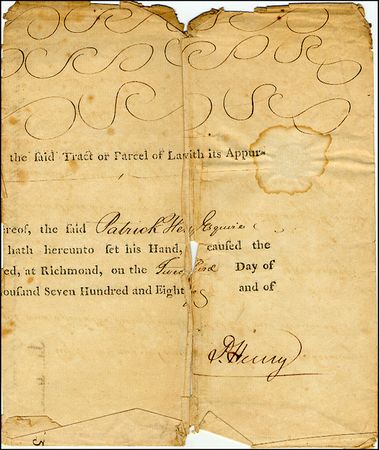 the said Tract or Parcel of La with its Appur-
ereof, the said Patrick He Esquire
hath hereunto set his Hand, caused the
ed, at Richmond, on the Day of
ousand Seven Hundred and Eight and of
P. Henry